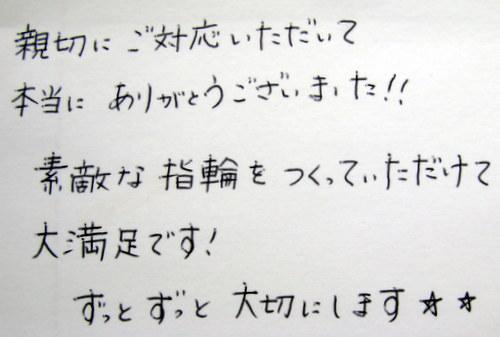 親切に ご対応いただいて
本当に ありがとうございました!!
素敵な 指輪を つくっていただけて
大満足です!
ずっと ずっと 大切にします☆☆